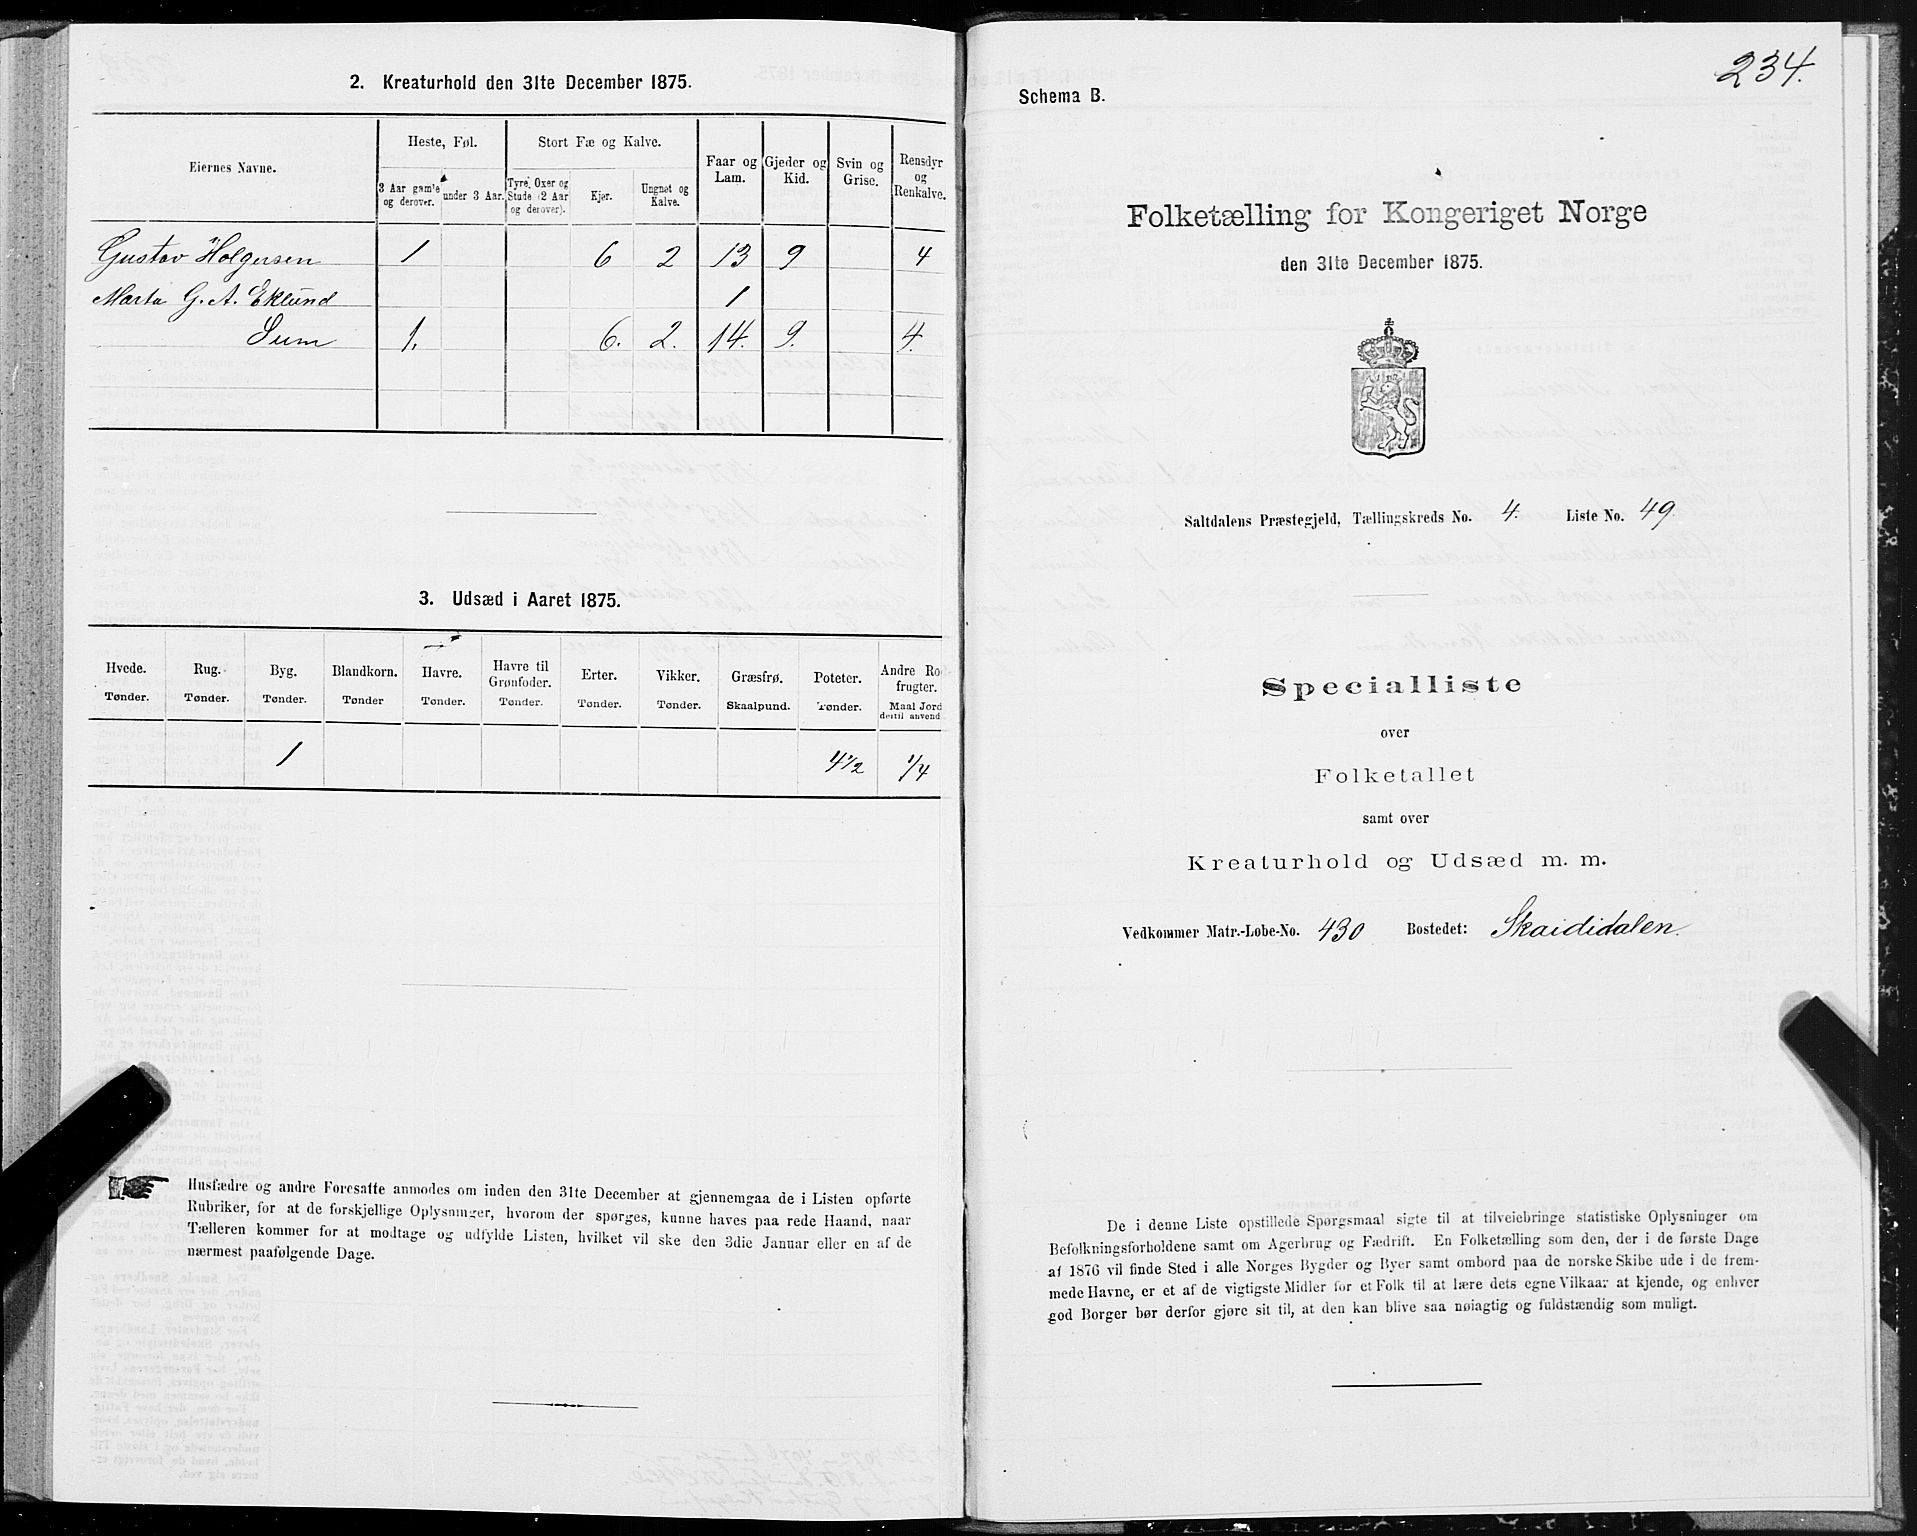 2. Kreaturhold den 31te December 1875.
Eiernes Navne.
Heste, Føl.
Stort Fæ og Kalve.
Faar og Lam.
Gjeder og Kid.
Svin og Grise.
Rensdyr og Renkalve.
3 Aar gam'e og derover.
under 3 Aar.
Tyre, Oxer og Stude (2 Aar og derover).
Kjør.
Ungnøt og Kalve.
Gustav Holgersen 1 6 2 13 9 4
Marta G. A. Eklund 1
Sum 1. 6. 2. 14. 9. 4.
3. Udsæd i Aaret 1875.
Hvede. Rug. Byg. Blandkorn. Havre. Havre til Grønfoder. Erter. Vikker. Græsfrø. Poteter. Andre Ro frugter.
Tønder. Tønder. Tønder. Tønder Tønder. Tønder. Tønder. Tønder. Skaalpund. Tønder. Maal Jord dertil anvend
1 4 1/2 1/4
Husfædre og andre Foresatte anmodes om inden den 31te December at gjennemgaa de i Listen opførte
Rubriker, for at de forskjellige Oplysninger, hvorom der spørges, kunne haves paa rede Haand, naar
Tælleren kommer for at modtage og udfylde Listen, hvilket vil ske den 3die Januar eller en af de
nærmest paafølgende Dage.
234.
Schema B.
Folketælling for Kongeriget Norge
den 31te December 1875.
Saltdalens Præstegjeld, Tællingskreds No. 4. Liste No. 49.
Specialliste
over
Folketallet
samt over
Kreaturhold og Udsæd m. m.
Vedkommer Matr.-Løbe-No. 430 Bostedet: Skaididalen.
De i denne Liste opstillede Spørgsmaal sigte til at tilveiebringe statistiske Oplysninger om
Befolkningsforholdene samt om Agerbrug og Fædrift. En Folketælling som den, der i de første Dage
af 1876 vil finde Sted i alle Norges Bygder og Byer samt ombord paa de norske Skibe ude i de frem-
mede Havne, er et af de vigtigste Midler for et Folk til at lære dets egne Vilkaar at kjende, og enhver
god Borger bør derfor gjøre sit til, at den kan blive saa nøiagtig og fuldstændig som muligt.